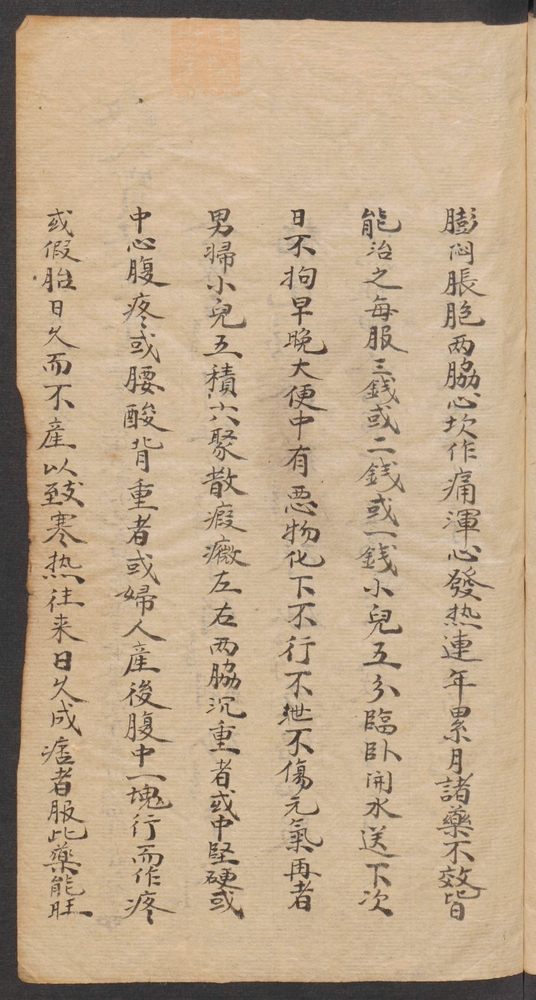 膨悶脹胞两脇心坎作痛渾心發热連年累月諸藥不效皆
能治之每服三錢或二錢或一錢小兒五分臨卧開水送下次
日不拘早晚大便中有惡物化下不行不泄不傷元氣再者
男婦小兒五積六聚散瘕癥左右两脇沉重者或中堅硬或
中心腹疼或腰酸背重者或婦人産後腹中一塊行而作疼
或假胎日久而不産以致寒热往来日久成痞者服此藥能旺